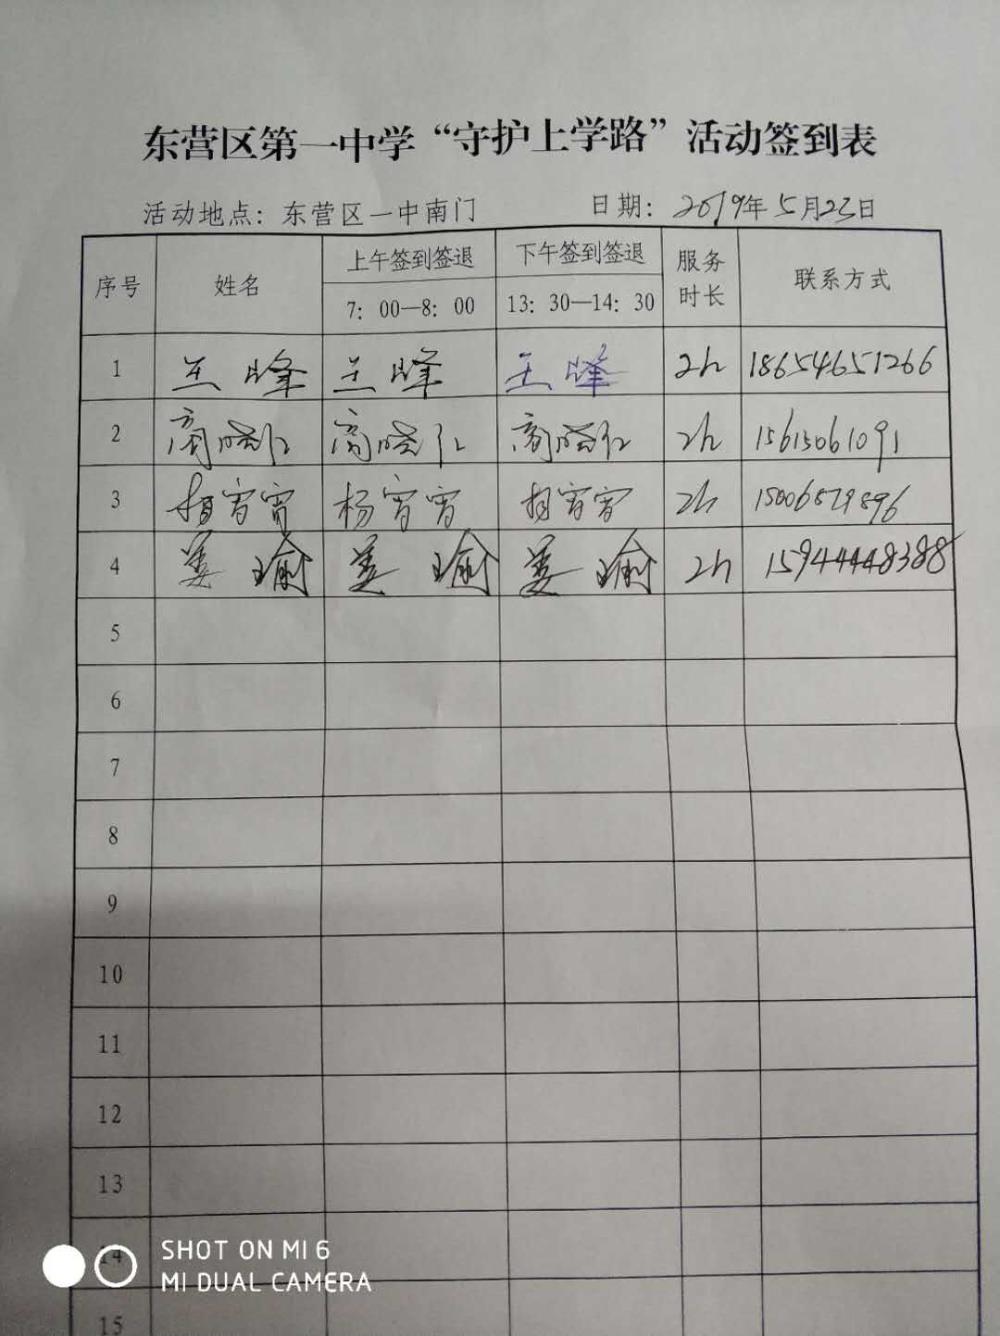 东营区第一中学“守护上学路”活动签到表
活动地点：东营区一中南门 日期：2019年5月23日
序号 姓名 上午签到签退 7：00—8：00 下午签到签退 13：30—14：30 服务时长 联系方式
1 王峰 王峰 王峰 2h 18654651266
2 2h 15615061091
3 杨宵宵 杨宵宵 杨宵宵 2h
4 姜瑜 姜瑜 姜瑜 2h 15944448388
5
6
7
8
9
10
11
12
13
14
15
SHOT ON MI 6
MI DUAL CAMERA